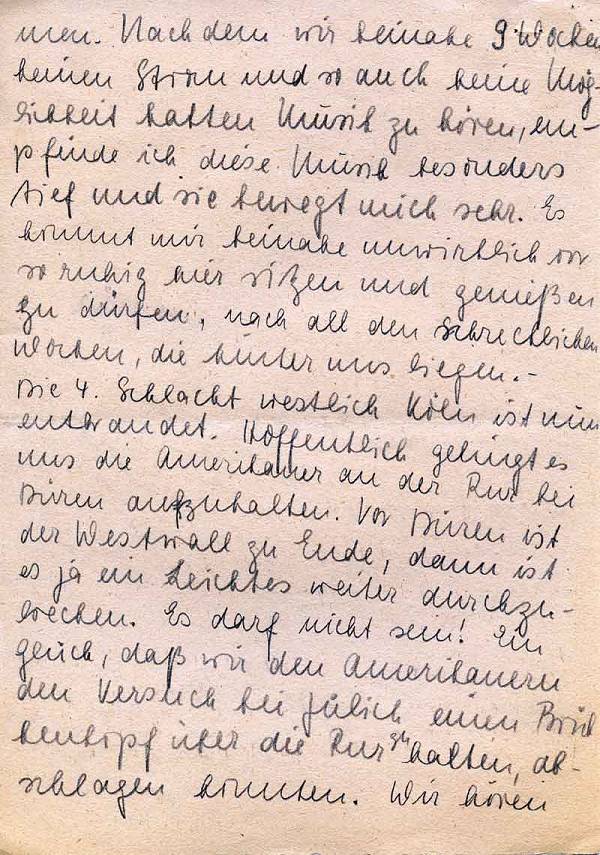 men. Nachdem wir beinahe 9 Wochen
keinen Strom und so auch keine Mög-
lichkeit hatten Musik zu hören, em-
pfinde ich diese Musik besonders
tief und sie bewegt mich sehr. Es
kommt mir beinahe unwirklich vor
so ruhig hier sitzen und genießen
zu dürfen, nach all den schrecklichen
Wochen, die hinter uns liegen.-
Die 4. Schlacht westlich Köln ist nun
entbrandet. Hoffentlich gelingt es
uns die Amerikaner an der Rur bei
Düren aufzuhalten. Vor Düren ist
der Westwall zu Ende, dann ist
es ja ein Leichtes weiter durchzu-
brechen. Es darf nicht sein! Ein
Glück, daß wir den Amerikanern
den Versuch bei Jülich einen Brük
kenkopf über die Rur zu halten, ab-
schlagen konnten. Wir hören